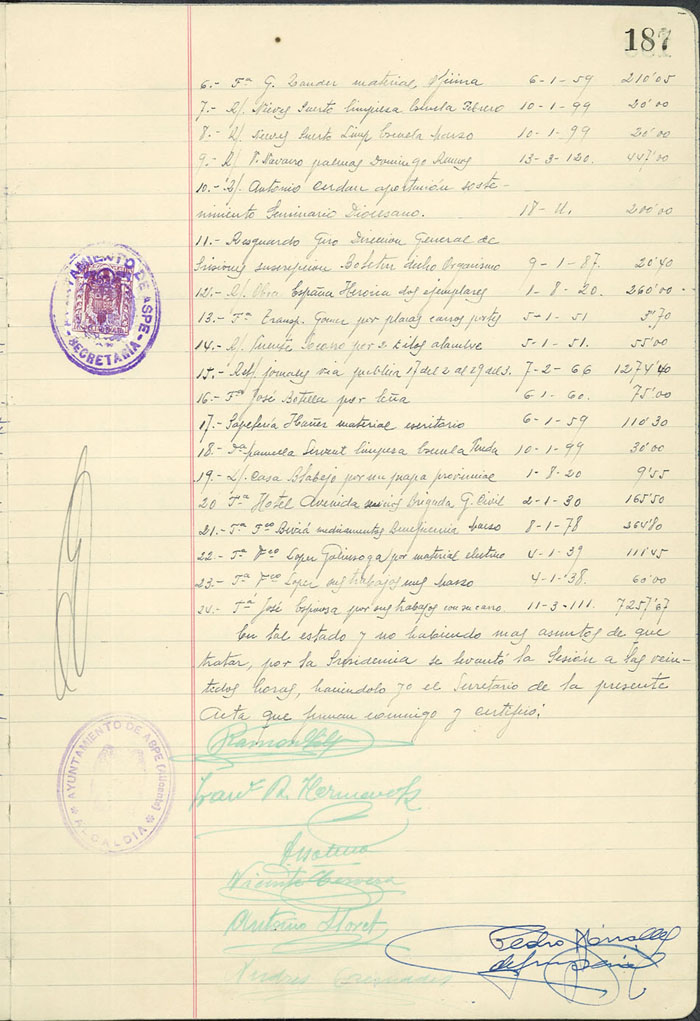 187
6.- Fª G. Zander material, oficina 6-1-59 210'05
7.- R/. Nieves Puerto limpieza Escuela Febrero 10-1-99 20'00
8.- R/. Nieves Puerto Limp. Escuela Marzo 10-1-99 20'00
9.- R/. V. Navarro palmas Domingo Ramos 13-3-120. 447'00
10.- R/. Antonio aportación soste-
nimiento Seminario Diocesano. 18-U. 200'00
11.- Resguardo Giro Direccion General de
suscripcion Boletin dicho Organismo 9-1-87. 20'40
12.- R/. Obra España Heroica dos ejemplares 1-8-20. 260'00
13.- Fª Transp. Gomer por placas carros portes 5-1-51 70
14.- R/. por 2 kilos alambre 5-1-51. 55'00
15.- Rel/ jornales via publica 17 del 2 al 29 del 3. 7-2-66 1274'40
16.- Fª José Botella por leña 6-1-60. 75'00
17.- Papeleria Ibañez material escritorio 6-1-59 110'30
18.- Dª Servent limpieza Escuela 10-1-99 30'00
19.- L/. Casa por un mapa provincial 1-8-20 9'55
20 Fª Hotel Avenida Brigada G. Civil 2-1-30 165'50
21.- Fª Fco medicamentos Beneficencia Marzo 8-1-78 364'80
22.- Fª Vco Lopez Galiesoga por material electrico 4-1-39 111'45
23.- Fª Vco Lopez sus trabajos mes Marzo 4-1-38. 60'00
24.- Fª José Espinosa por sus trabajos con su carro. 11-3-111. 7257'67
En tal estado y no habiendo mas asuntos de que
tratar, por la Presidencia se levantó la Sesión a las vein-
tidos horas, haciendolo yo el Secretario de la presente
Acta que firman conmigo y certifico:
AYUNTAMIENTO DE ASPE
-SECRETARIA-
AYUNTAMIENTO DE ASPE (Alicante)
ALCALDIA
Ramon
Franº B. Hermenols
Vicente Cervera
Antonio Lloret
Andres
Pedro